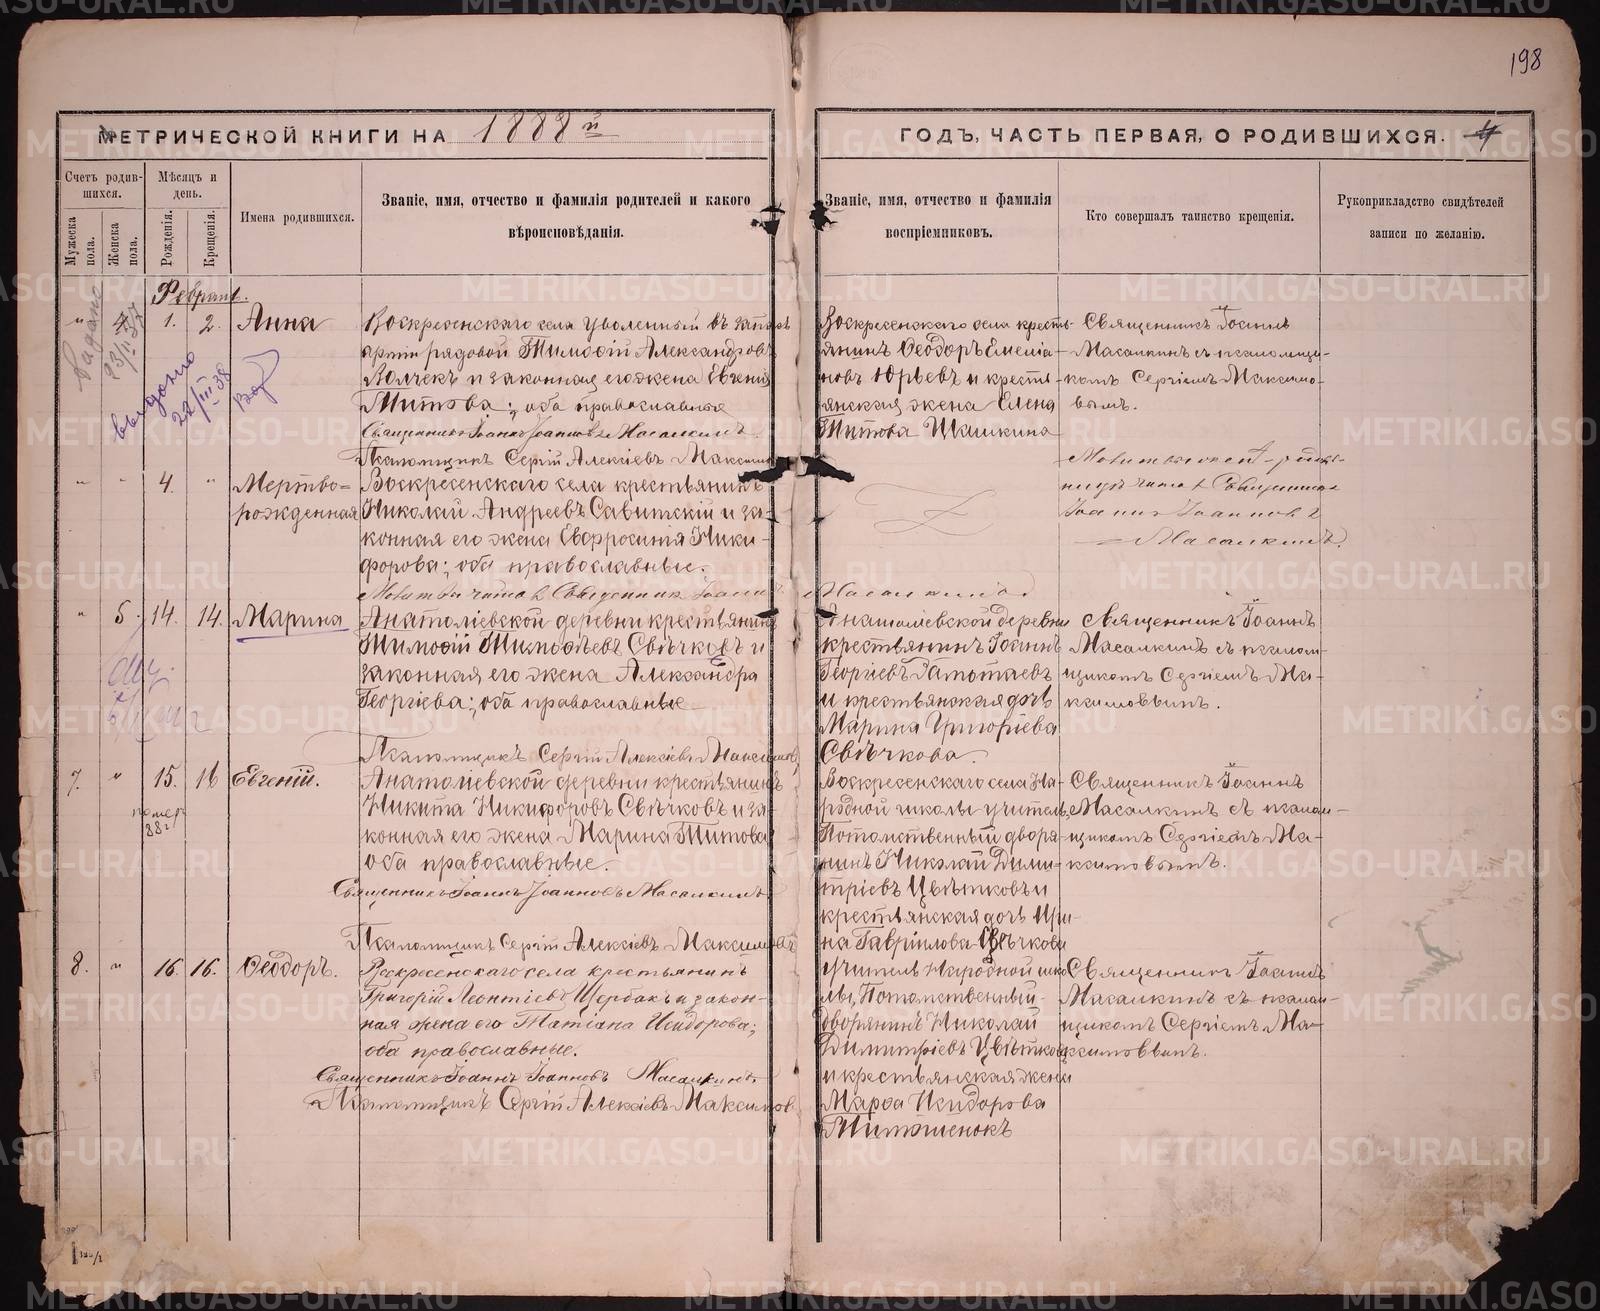 198
МЕТРИЧЕСКОЙ КНИГИ НА 1888 й
ГОДЪ, ЧАСТЬ ПЕРВАЯ, О РОДИВШИХСЯ. 4
Счетъ родив-
шихся.
Мужеска
пола.
Женска
пола.
Мѣсяцъ и
день.
Рожденія.
Крещенія.
Имена родившихся.
Званіе, имя, отчество и фамилія родителей и какого
вѣроисновѣданія.
Званіе, имя, отчество и фамилія
воспріемниковъ.
Кто совершалъ таинство крещенія.
Рукоприкладство свидѣтелей
записи по желанію.
Февраль.
" 4 1. 2. Анна
выдано
22/III 38
Воскресенскаго села уволенный въ запасъ
арміи рядовой Тимоѳій Александровъ
Волчекъ и законная его жена Евгенія
Титова; оба православные
Священникъ Іоаннъ Іоанновъ Масалкинъ
Псаломщикъ Сергій Алексіевъ Максимовъ
Воскресенскаго села кресть-
янинъ Ѳеодоръ Емелiа-
новъ Юрьевъ и кресть-
янская жена Елена
Титова Шашкина
Священникъ Іоаннъ
Масалкинъ съ псаломщи-
комъ Сергіемъ Максимо-
вымъ.
" " 4. " Мертво=
рожденная
Воскресенскаго села крестьянинъ
Николай Андреевъ Савитскій и за-
конная его жена Евфросинія Ники-
форова; оба православные.
Молитвы читалъ Священникъ Іоаннъ Масалкинъ
Молитвы
читалъ Священникъ
Іоаннъ Іоанновъ
Масалкинъ.
" 5. 14. 14. Марина
Анатоліевской деревни крестьянинъ
Тимоѳій Тимоѳѣевъ Свѣчковъ и
законная его жена Александра
Георгіева; оба православные
Псаломщикъ Сергій Алексіевъ Максимовъ
Анатоліевской деревни
крестьянинъ Іоаннъ
Георгіевъ Гатотаевъ
и крестьянская дочь
Марина Григоріева
Свѣчкова.
Священникъ Іоаннъ
Масалкинъ съ псалом-
щикомъ Сергіемъ Ма-
ксимовымъ.
7. " 15. 16 Евгеній.
помер
88 г
Анатоліевской деревни крестьянинъ
Никита Никифоровъ Свѣчковъ и за-
конная его жена Марина Титова
оба православные.
Священникъ Іоаннъ Іоанновъ Масалкинъ
Псаломщикъ Сергій Алексіевъ Максимовъ
Воскресенскаго села На-
родной школы учитель,
Потомственный дворя-
нинъ Николай Дими-
тріевъ Цвѣтковъ и
крестьянская дочь Ири-
на Гавріилова Свѣчкова
Священникъ Іоаннъ
Масалкинъ съ псалом-
щикомъ Сергіемъ Ма-
ксимовымъ.
8. " 16. 16. Ѳеодоръ.
Воскресенскаго села крестьянинъ
Григорій Леонтіевъ Щербакъ и закон-
ная жена его Татіана Исидорова;
оба православные.
Священникъ Іоаннъ Іоанновъ Масалкинъ
Псаломщикъ Сергій Алексіевъ Максимовъ
Учитель Народной шко
лы, Потомственный
дворянинъ Николай
Димитріевъ Цвѣтковъ
и крестьянская жена
Марѳа Исидорова
Митюшенокъ
Священникъ Іоаннъ
Масалкинъ съ псалом-
щикомъ Сергіемъ Ма-
ксимовымъ.
METRIKI.GASO-URAL.RU